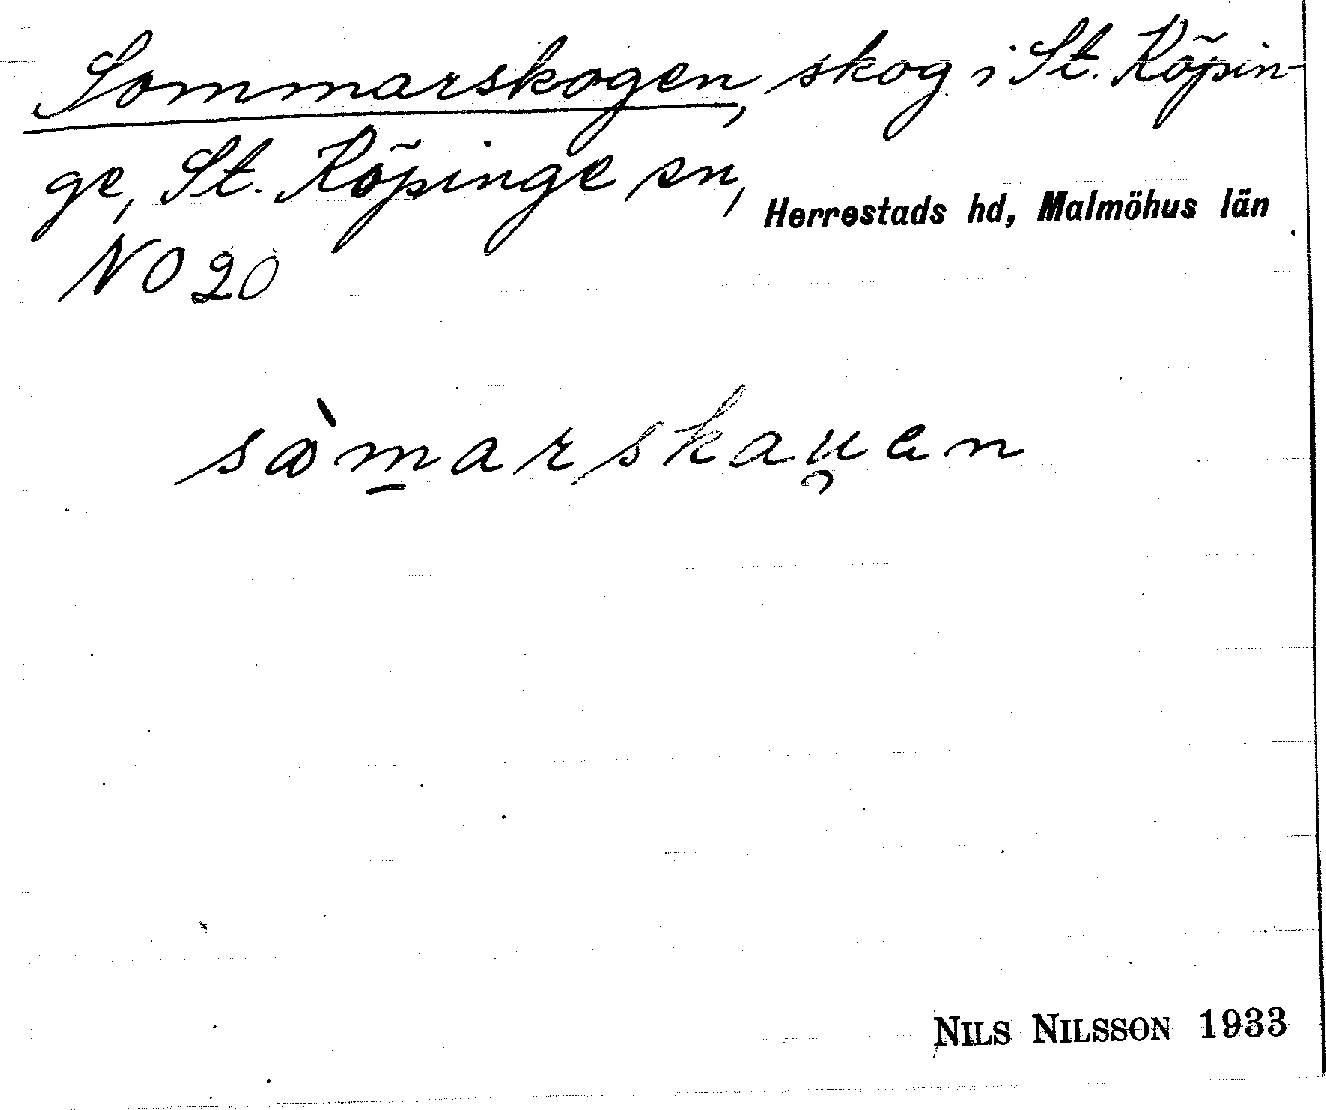 Sommarskogen, skog i St. Köpin-
ge, St. Köpinge sn, Herrestads hd, Malmöhus län
NO 20
sàm̠arskau̯en
NILS NILSSON 1933